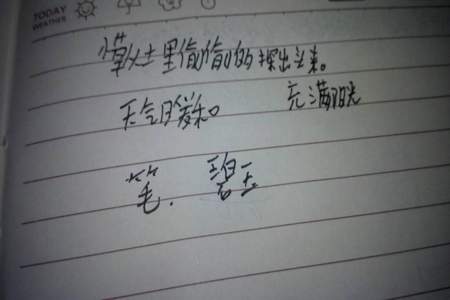 TODAY
WEATHER
小草从土里偷偷的探出头来。
天气暖和。 充满阳光
笔. 碧玉